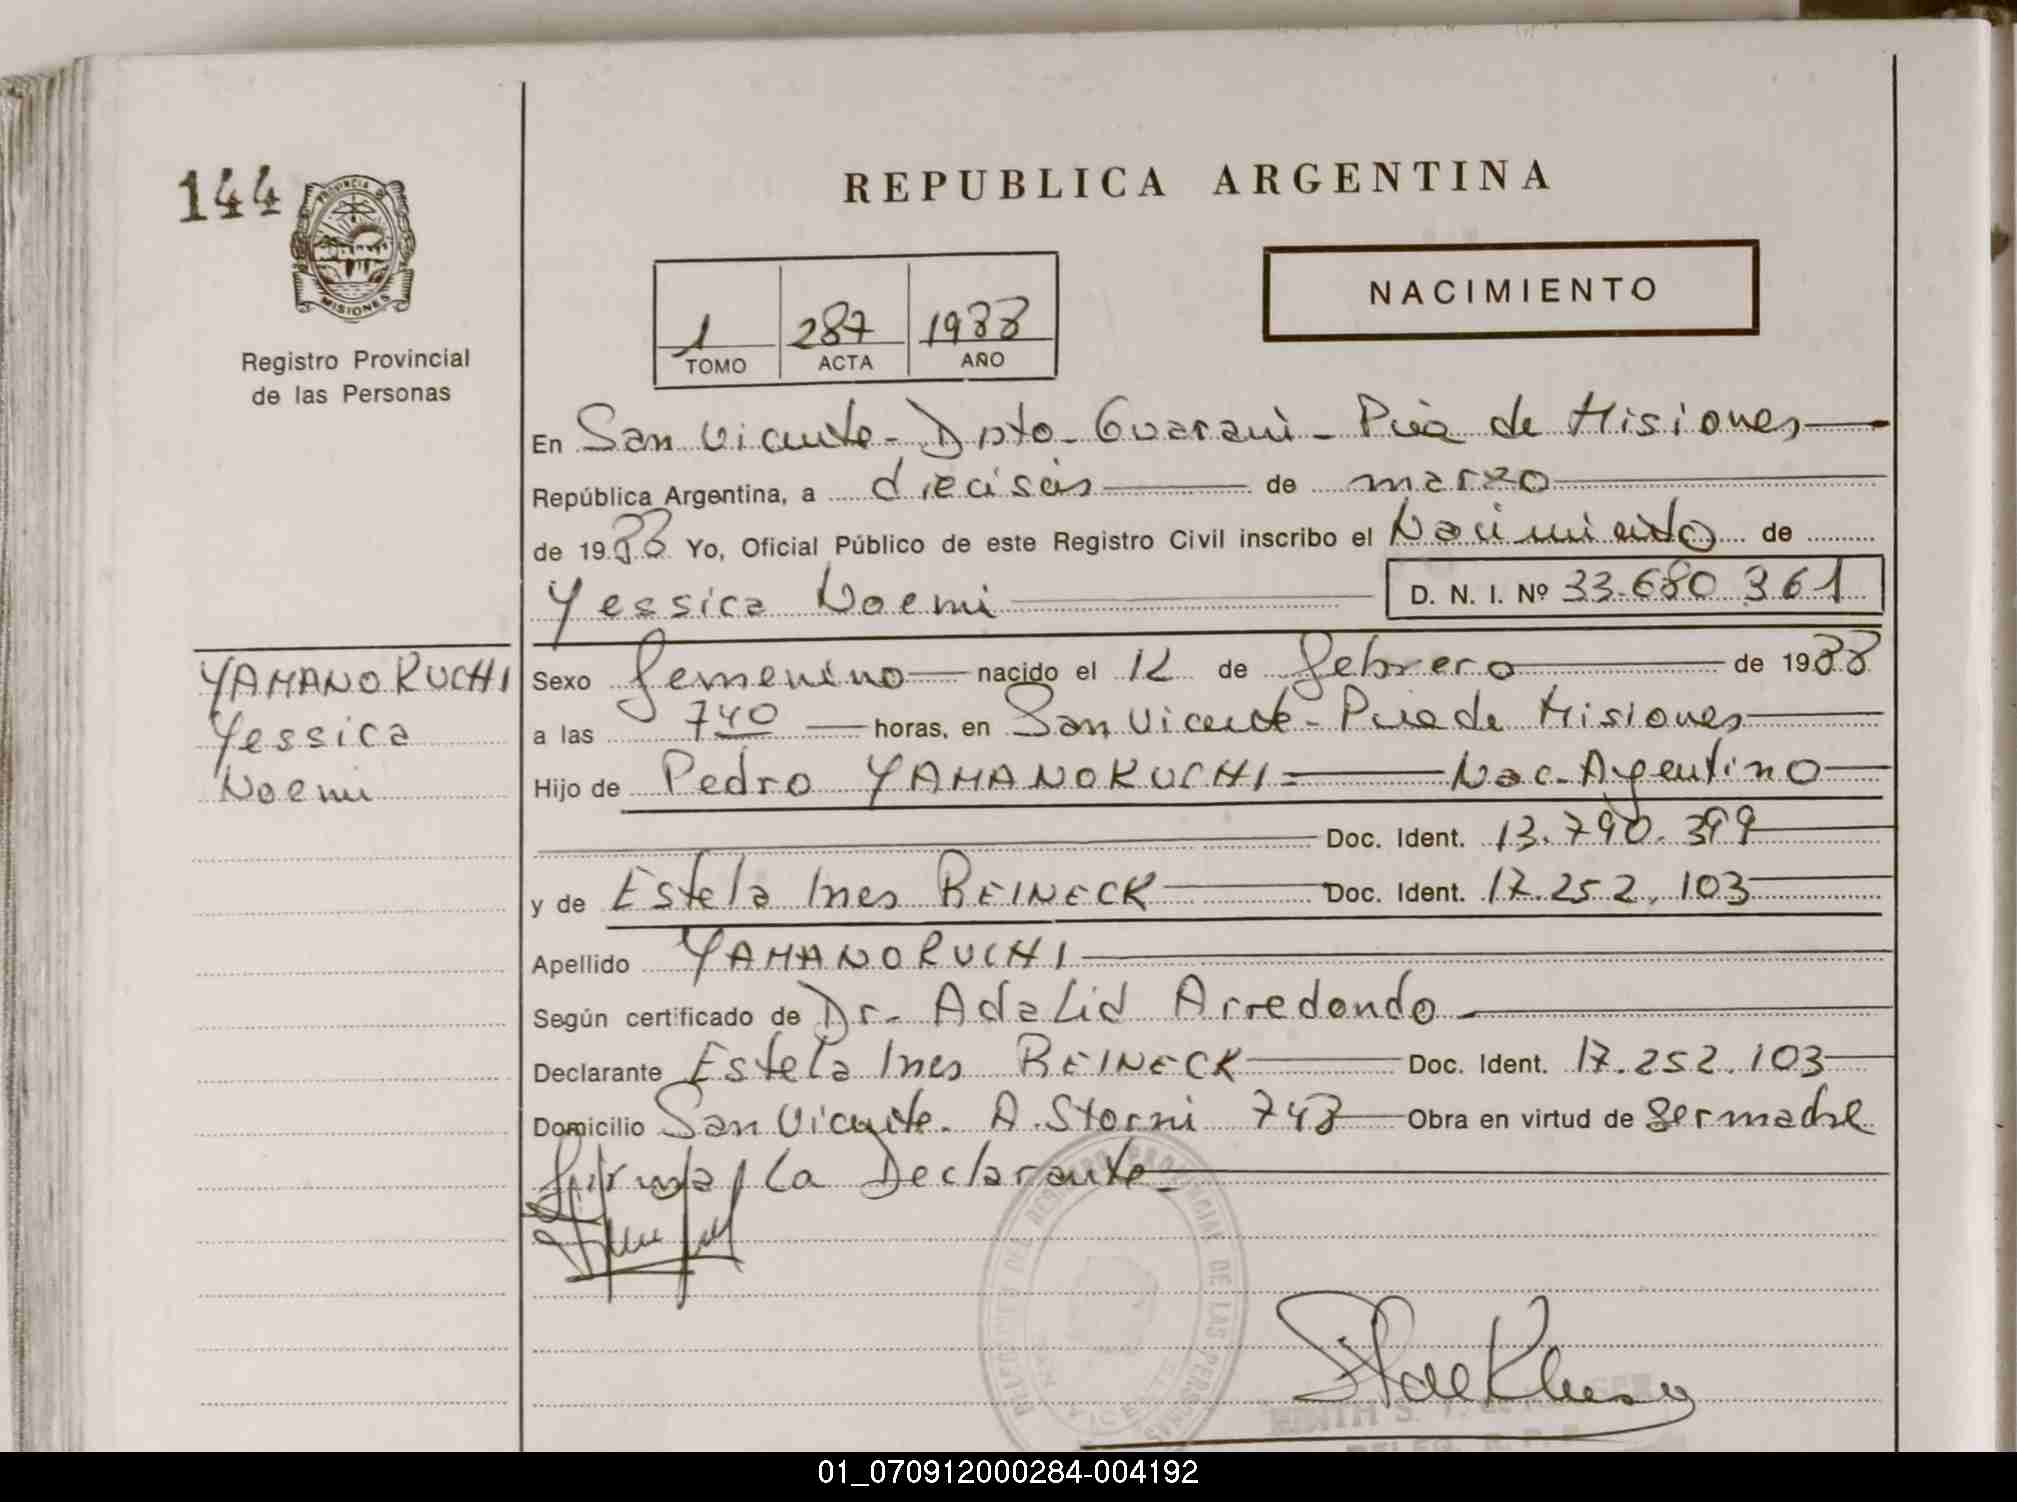 144
PROVINCIA DE
MISIONES
Registro Provincial
de las Personas
REPUBLICA ARGENTINA
1 287 1988
TOMO ACTA AÑO
NACIMIENTO
En San Vicente - Dpto - Guarani - Pcia de Misiones
República Argentina, a dieciseis de marzo
de 1988 Yo, Oficial Público de este Registro Civil inscribo el Nacimiento de
Yessica Noemi D. N. I. Nº 33.680 361
YAMANOKUCHI
Yessica
Noemi
Sexo femenino nacido el 12 de febrero de 1988
a las 740 horas, en San Vicente - Pcia de Misiones
Hijo de Pedro YAMANOKUCHI = Nac. Argentino
Doc. Ident. 13.790.399
y de Estela Ines REINECK Doc. Ident. 17.252.103
Apellido YAMANOKUCHI
Según certificado de Dr. Adalid Arredondo
Declarante Estela Ines REINECK Doc. Ident. 17.252.103
Domicilio San Vicente. A. Storni 743 Obra en virtud de ser madre
firma La Declarante
REGISTRO PROVINCIAL DE LAS PERSONAS
SAN VICENTE
01_070912000284-004192